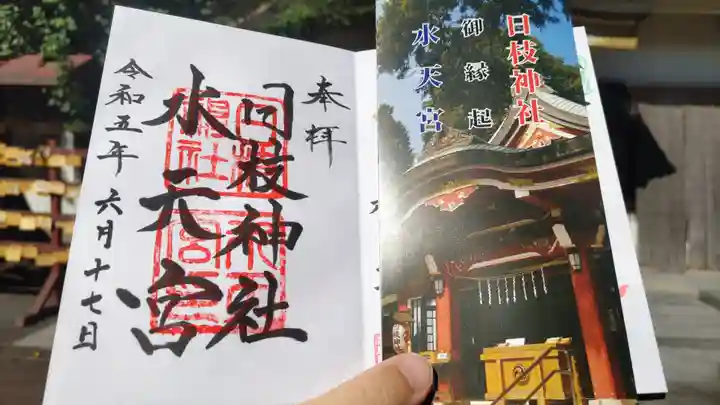 奉拝
日枝神社
水天宮
令和五年 六月十七日
日枝神社
御縁起
水天宮